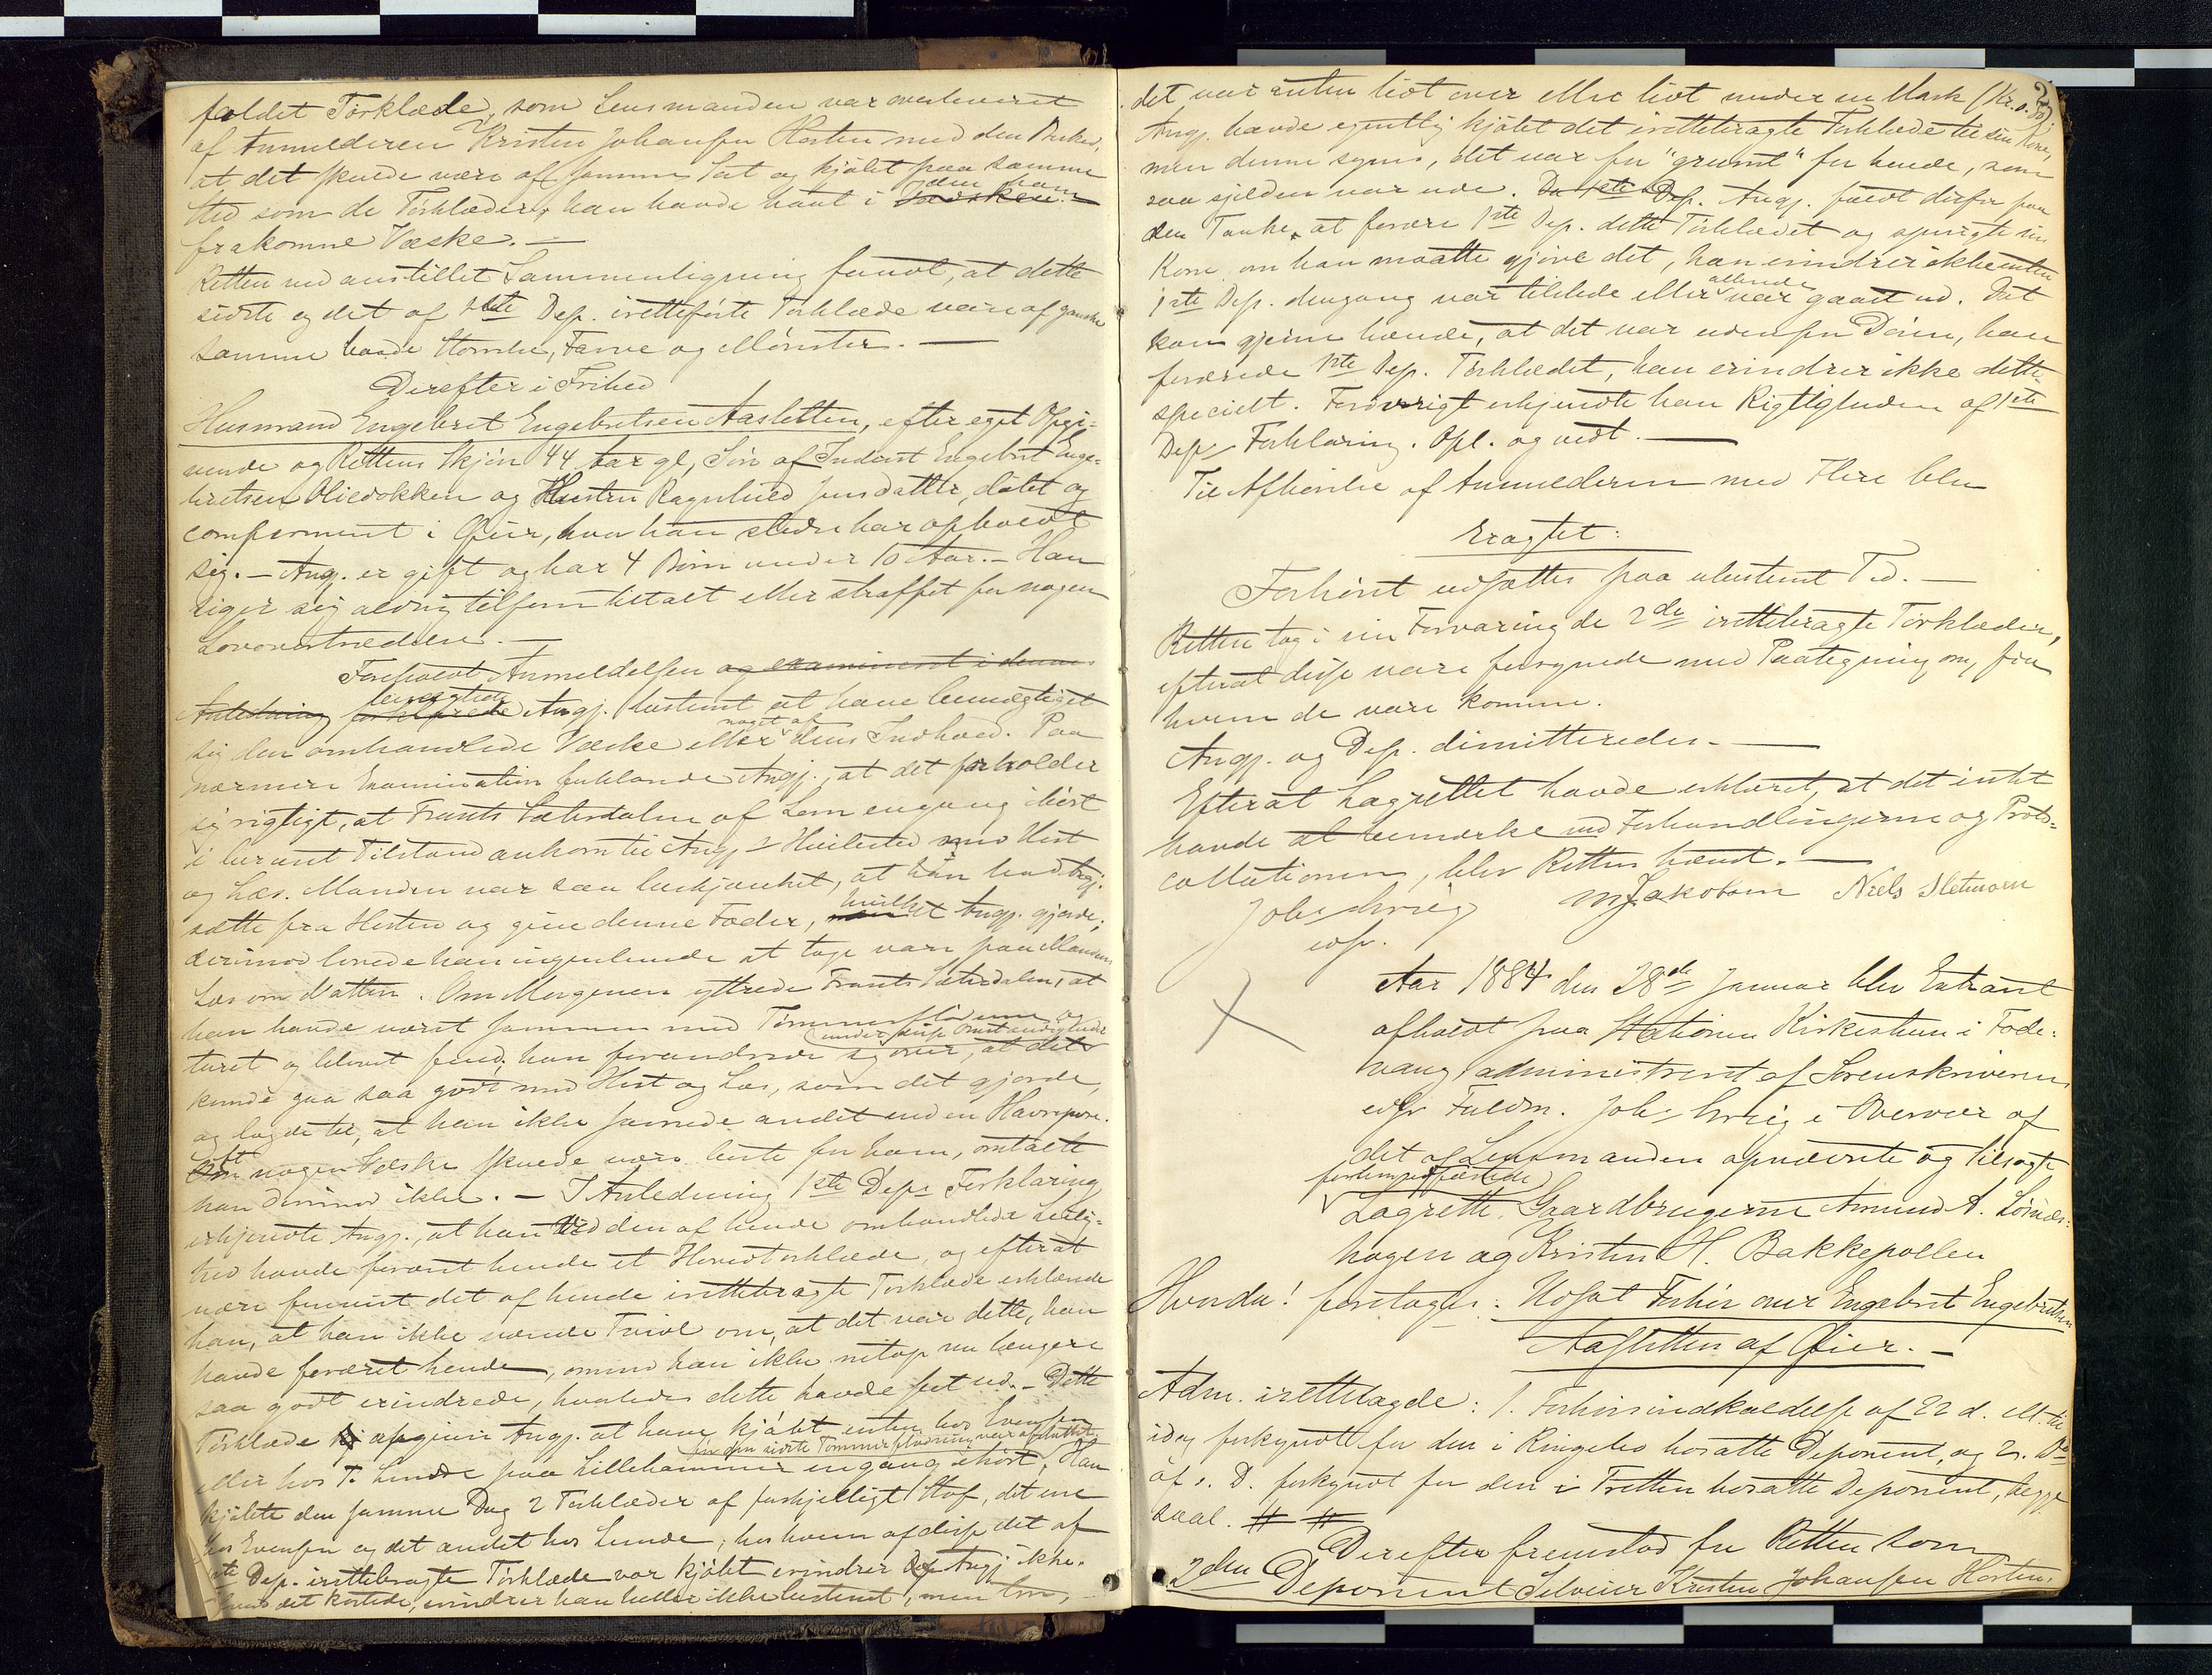 foldet Tørklæde, som Lensmanden var overleveret
af Anmelderen Kristen Johansen Horten med den Bemærk,
at det skulde være af samme Sort og kjøbt paa samme
Sted som de Tørklæder, han havde havt i den ham
frakomne Væske. —
Retten ved anstillet Sammenligning fandt, at dette
sidste og det af 1ste Dep. iretteførte Tørklæde var af ganske
samme baade Størrelse, Farve og Mønster. —
Derefter i Frihed
Husmand Engebret Engebretsen Aasletten, efter eget Opgi-
vende og Rettens Skjøn 44 Aar gl, Søn af Inderst Engebret Enge-
bretsen Oliedokken og Hustru Ragnhild Jensdatter, døbt og
confirmeret i Øier, hvor han stedse har opholdt
sig. — Angj. er gift og har 4 Børn under 10 Aar. — Han
siger sig aldrig tilforn tiltalt eller straffet for nogen
Lovovertrædelse. —
Foreholdt Anmeldelsen og examineret i denne
Anledning benægtede Angj. bestemt at have bemægtiget
sig den omhandlede Væske eller noget af dens Indhold. Paa
nærmere Examination forklarede Angj., at det forholder
sig rigtigt, at Frants Sætersdalen af Lom engang ihøst
i beruset Tilstand ankom til Angj.s Hvilested med Hest
og Læs. Manden var saa beskjænket, at han bad Angj.
sætte fra Hesten og give denne Foder, hvilket Angj. gjorde;
derimod lovede han ingenlunde at tage vare paa Mandens
Læs om Natten. Om Morgenen yttrede Frants Sætersdalen, at
han havde været sammen med Tømmerfløderne og
turet og blevet fuld, han forundrede sig over, at det under disse Omstændigheder
kunde gaa saa godt med Hest og Læs, som det gjorde,
og lagde til, at han ikke savnede andet end en Havrepose.
At nogen Væske skulde være borte for ham, omtalte
han derimod ikke. — I Anledning 1ste Deps Forklaring
erkjendte Angj., at han ved den af hende omhandlede Leilig-
hed havde foræret hende et Hovedtørklæde, og efterat
være forevist det af hende irettebragte Tørklæde erklærede
han, at han ikke nærede Tvivl om, at det var dette, han
havde foræret hende, omend han ikke netop nu længere
saa godt erindrede, hvorledes dette havde seet ud. — Dette
Tørklæde opgiver Angj. at have kjøbt enten hos Evensen
eller hos T. Lunde paa Lillehammer engang ihøst, før den sidste Tømmerflødning var afsluttet. Han
kjøbte den samme Dag 2 Tørklæder af forskjelligt Stof, det ene
hos Evensen og det andet hos Lunde; hos hvem af disse det af
1ste Dep. irettebragte Tørklæde var kjøbt erindrer Angj. ikke.
Hvad det kostede, erindrer han heller ikke bestemt, men tror,
det var enten lidt over eller lidt under en Mark (Kr. 0.80).
Angj. havde egentlig kjøbt det irettebragte Tørklæde til sin Kone,
men denne synes, det var for "grumt" for hende, som
saa sjelden var ude. Da 1ste Dep. Angj. faldt derfor paa
den Tanke, at forære 1ste Dep. dette Tørklædet og spurgte sin
Kone om han maatte gjøre det, han erindrer ikke enten
1ste Dep. dengang var tilstede eller allerede var gaaet ud. Det
kan gjerne hænde, at det var udenfor Døren, han
forærede 1ste Dep. Tørklædet, han erindrer ikke dette
specielt. Forøvrigt erkjendte han Rigtigheden af 1ste
Deps Forklaring. Opl. og vedt. —
Til Afhørelse af Anmelderen med Flere blev
Eragtet:
Forhøret udsættes paa ubestemt Tid. —
Retten tog i sin Forvaring de 2de irettebragte Tørklæder,
efterat disse vare forsynede med Paategning om, fra
hvem de vare komne.
Angj. og Dep. dimitteredes. —
Efterat Lagrettet havde erklæret, at det intet
havde at bemærke ved Forhandlingerne og Proto-
collationen, blev Retten hævet. —
M Jakobsen Niels Sletmoen
edsv.
Aar 1884 den 28de Januar blev Extraret
afholdt paa Stationen Kirkestuen i Fode-
vang administreret af Sorenskriverens
edsv Fuldm. Joh. Krig i Overvær af
det af Lensmanden opnævnte og tilsagte
forhen edfæstede
Lagrette, Gaardbrugerne Amund A. Løsnæs-
hagen og Kristen H. Bakkepollen
Hvorda! foretages: Udsat Forhør over Engebret Engebretsen
Aasletten af Øier. —
Adm. irettelagde: 1. Forhørsindkaldelse af 22 d. M. til
idag forkyndt for den i Ringebo bosatte Deponent, og 2. Do
af s. D. forkyndt for den i Tretten bosatte Deponent, begge
saal.
Derefter fremstod for Retten som
2den Deponent Selveier Kristen Johansen Horten,